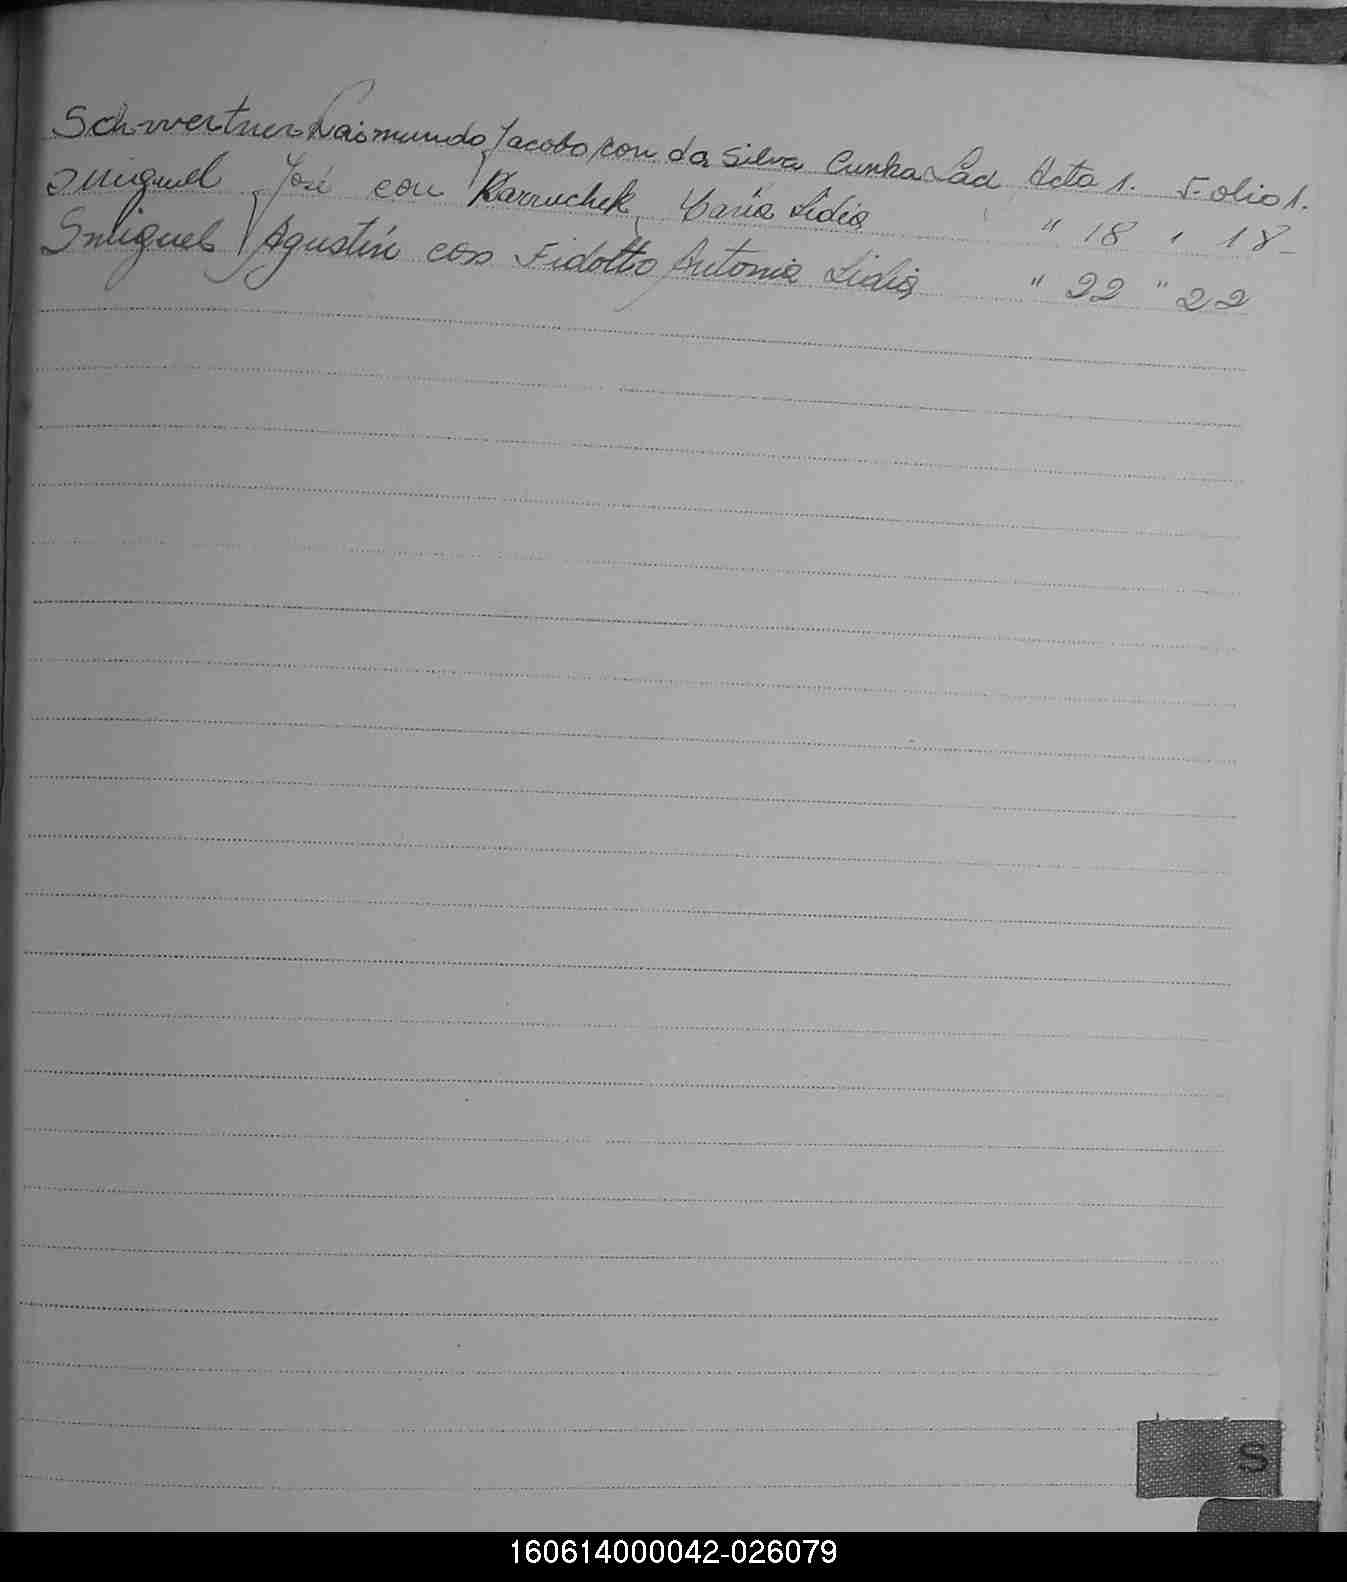 Schwertner Raimundo Jacobo con da Silva Cunha Lad Acta 1. Folio 1.
Smiguel, José con Karruchek, María Lidia " 18 " 18-
Smiguel, Agustín con Fidotto Antonia Lidia " 22 " 22
S
160614000042-026079